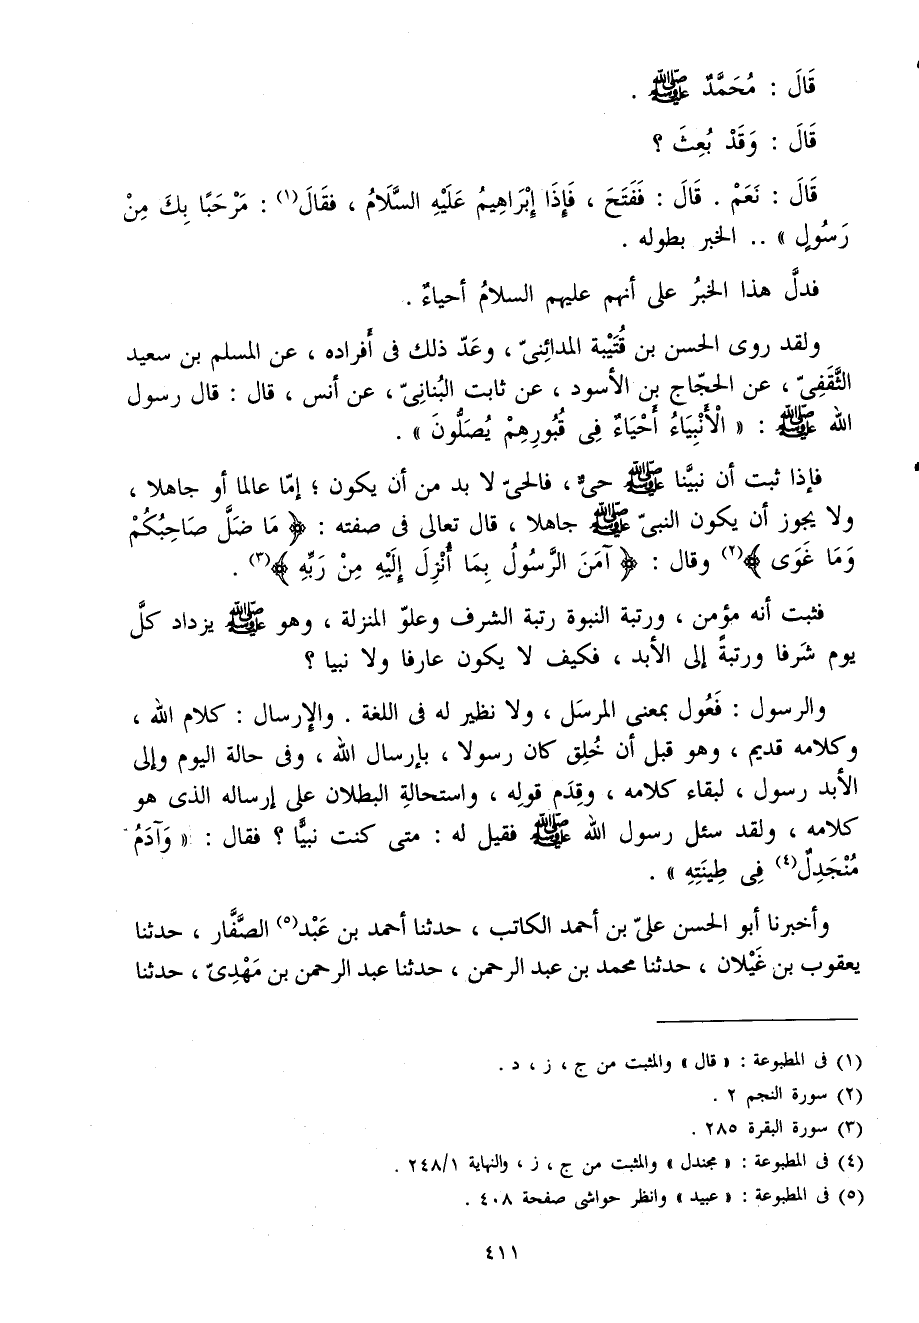 قَالَ : مُحَمَّدٌ ﷺ .
قَالَ : وَقَدْ بُعِثَ ؟
قَالَ : نَعَمْ . قَالَ : فَفَتَحَ ، فَإِذَا إِبْرَاهِيمُ عَلَيْهِ السَّلَامُ ، فقَالَ(١) : مَرْحَبًا بِكَ مِنْ
رَسُولٍ » .. الخبر بطوله .
فدلَّ هذا الخبرُ على أنهم عليهم السلامُ أحياءٌ .
ولقد روى الحسن بن قُتَيْبة المدائِنىّ ، وعَدّ ذلك فى أَفراده ، عن المسلم بن سعيد
الثَّقَفِىّ ، عن الحجّاج بن الأسود ، عن ثابت البُنانِىّ ، عن أنس ، قال : قال رسول
الله ﷺ : « الْأَنْبِيَاءُ أَحْيَاءٌ فِى قُبُورِهِمْ يُصَلُّونَ » .
فإذا ثبت أن نبيَّنا ﷺ حىٌّ ، فالحىّ لا بد من أن يكون ؛ إمّا عالما أو جاهلا ،
ولا يجوز أن يكون النبىّ ﷺ جاهلا ، قال تعالى فى صفته : ﴿ مَا ضَلَّ صَاحِبُكُمْ
وَمَا غَوَى ﴾(٢) وقال : ﴿ آمَنَ الرَّسُولُ بِمَا أُنْزِلَ إِلَيْهِ مِنْ رَبِّهِ ﴾(٣) .
فثبت أنه مؤمن ، ورتبة النبوة رتبة الشرف وعلوّ المنزلة ، وهو ﷺ يزداد كلَّ
يوم شَرفا ورتبةً إلى الأبد ، فكيف لا يكون عارفا ولا نبيا ؟
والرسول : فَعُول بمعنى المرسَل ، ولا نظير له فى اللغة . والإرسال : كلام الله ،
وكلامه قديم ، وهو قبل أن خُلِق كان رسولا ، بإرسال الله ، وفى حالة اليوم وإلى
الأبد رسول ، لبقاء كلامه ، وقِدَم قولِه ، واستحالةِ البطلان على إرساله الذى هو
كلامه ، ولقد سئل رسول الله ﷺ فقيل له : متى كنت نبيًّا ؟ فقال : « وَآدَمُ
مُنْجَدِلٌ(٤) فِى طِينَتِهِ » .
وأخبرنا أبو الحسن علىّ بن أحمد الكاتب ، حدثنا أحمد بن عَبْد(٥) الصَّفَّار ، حدثنا
يعقوب بن غَيْلان ، حدثنا محمد بن عبد الرحمن ، حدثنا عبد الرحمن بن مَهْدِىّ ، حدثنا
(١) فى المطبوعة : « قال » والمثبت من ج ، ز ، د .
(٢) سورة النجم ٢ .
(٣) سورة البقرة ٢٨٥ .
(٤) فى المطبوعة : « مجندل » والمثبت من ج ، ز ، والنهاية ٢٤٨/١ .
(٥) فى المطبوعة : « عبيد » وانظر حواشى صفحة ٤٠٨ .
٤١١